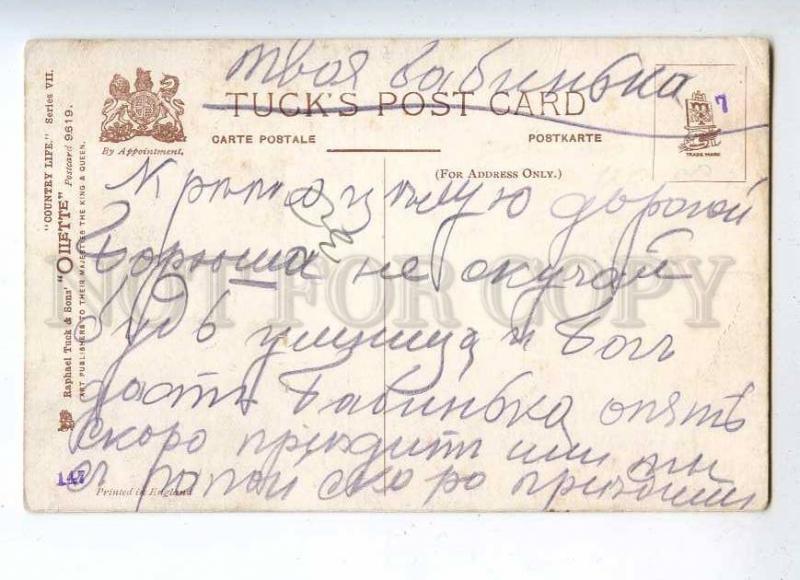 Твоя бабинька
TUCK'S POST CARD
By Appointment.
CARTE POSTALE
POSTKARTE
7
TRADE MARK
(FOR ADDRESS ONLY.)
"COUNTRY LIFE." Series VII.
Raphael Tuck & Sons' "OILETTE" Postcard 9619.
ART PUBLISHERS TO THEIR MAJESTIES THE KING & QUEEN.
цѣлую дорогой
Борюша не скучай
Будь умница и Богъ
дастъ бабинька опять
скоро приѣдитъ или ты
съ папой скоро
147
Printed in England
NOT FOR COPY